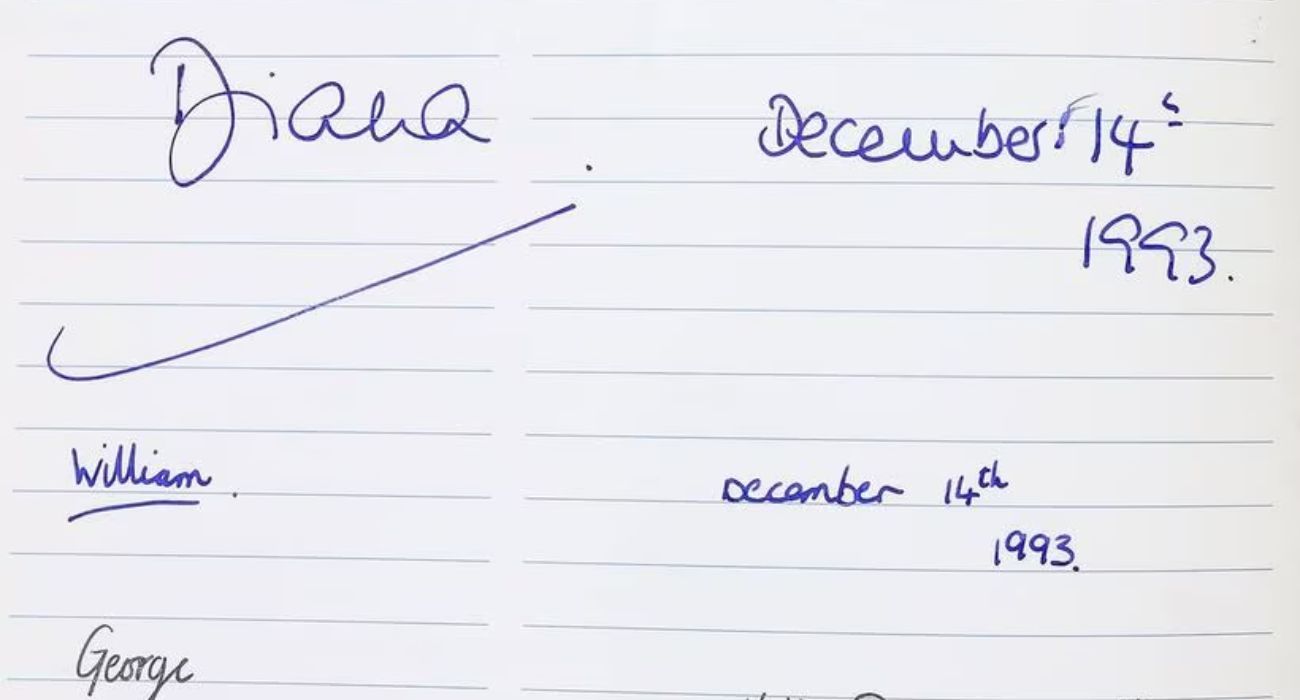 Diana December 14th
1993.
William. December 14th
1993.
George